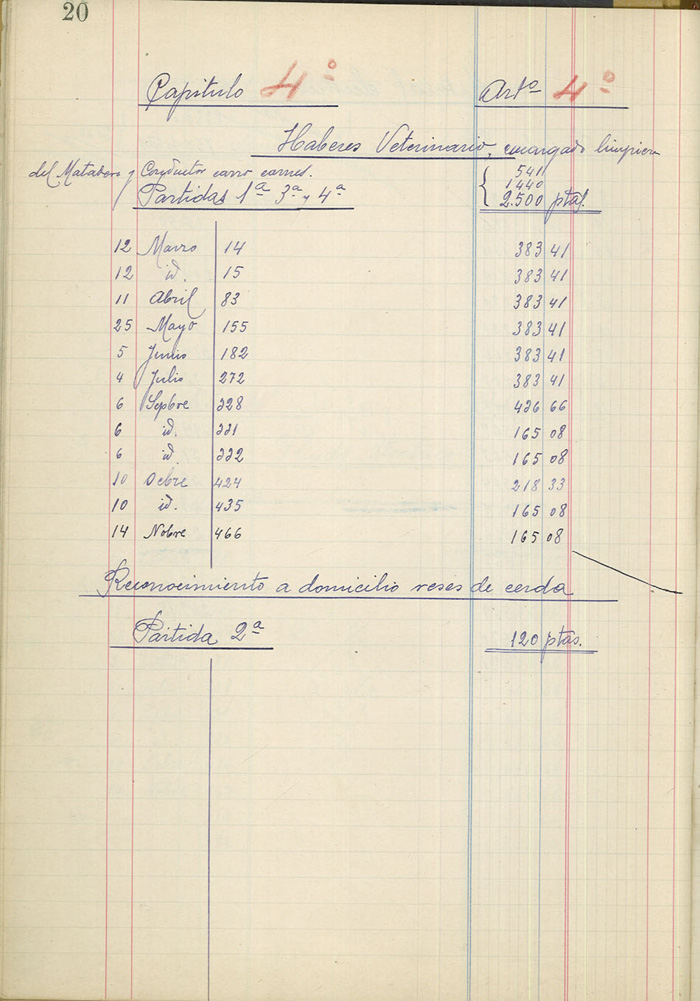 20
Capitulo 4º Artº 4º
Haberes Veterinario, encargado limpieza
del Matadero y Conductor carro carnes.
541
1440
Partidas 1ª 3ª y 4ª 2.500 ptas.
12 Marzo 14 383 41
12 id. 15 383 41
11 Abril 83 383 41
25 Mayo 155 383 41
5 Junio 182 383 41
4 Julio 272 383 41
6 Sepbre 328 426 66
6 id. 331 165 08
6 id 332 165 08
10 Ocbre 424 218 33
10 id. 435 165 08
14 Nobre 466 165 08
Reconocimiento a domicilio reses de cerda
Partida 2ª 120 ptas.